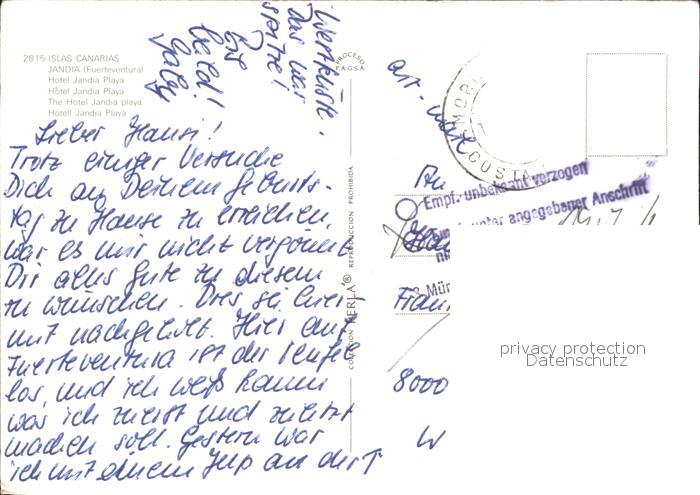 2815-ISLAS CANARIAS
JANDIA (Fuerteventura)
Hotel Jandia Playa
Hôtel Jandia Playa
The Hotel Jandia playa
Hotell Jandia Playa
Lieber Hansi!
Trotz einiger Versuche
Dich an Deinem Geburts-
tag zu Hause zu erreichen,
war es mir nicht vergönnt
Dir alles Gute zu diesem
zu wünschen. Dies sei hier-
mit nachgeholt. Hier auf
Fuerteventura ist der Teufel
los, und ich weiß kaum
was ich zuerst und zuletzt
machen soll. Gestern war
ich mit einem Jeep an der
Westküste.
Das war
spitze!
PROCESO
F.A.G.S.A.
COLECCION PERLA® REPRODUCCION PROHIBIDA
MORR
COSTA
An
Empf. unbekannt verzogen
unter angegebener Anschrift
Mün
8000
W
privacy protection
Datenschutz